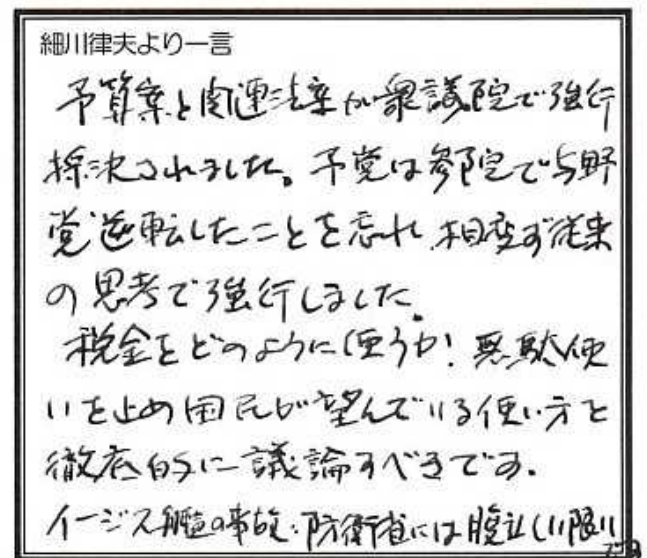 細川律夫より一言
予算案と関連法案が衆議院で強行
採決されました。予党は参院で与野
党逆転したことを忘れ、相変ず従来
の思考で強行しました。
税金をどのように使うか！無駄使
いを止め国民が望んでいる使い方を
徹底的に議論すべきです。
イージス艦の事故・防衛省には腹立しい限り